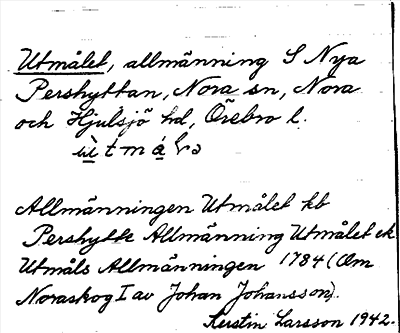 Utmålet, allmänning S Nya
Pershyttan, Nora sn, Nora
och Hjulsjö hd, Örebro l.
Allmänningen Utmålet kb
Pershytte Allmänning Utmålet ek
Utmåls Allmänningen 1784 (Om
Noraskog I av Johan Johansson).
Kerstin Larsson 1942.